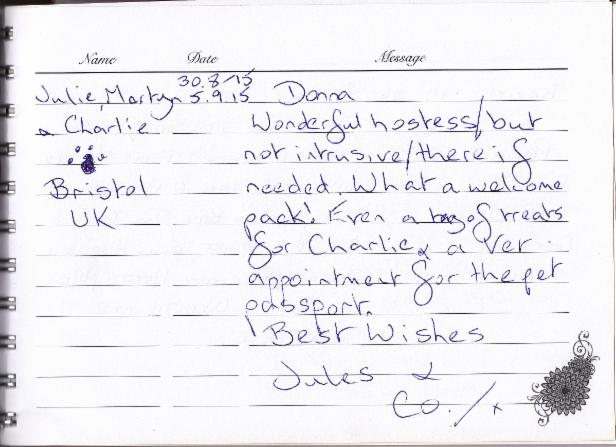 Name Date Message
Julie, Martyn 30.8/15 Donna
& Charlie 5.9.15 Wonderful hostess, but
not intrusive/there if
Bristol needed. What a welcome
UK pack! Even a bag of treats
for Charlie & a Vet
appointment for the pet
passport.
Best Wishes
Jules &
Co. /x